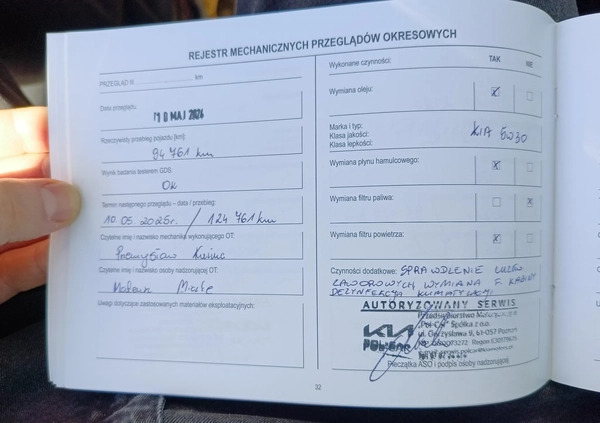 REJESTR MECHANICZNYCH PRZEGLĄDÓW OKRESOWYCH
PRZEGLĄD N. km
Data przeglądu:
10 MAJ 2024
Rzeczywisty przebieg pojazdu [km]:
94 761 km
Wynik badania testerem GDS:
OK
Termin następnego przeglądu – data / przebieg:
10.05.2025r. / 124 761 km
Czytelne imię i nazwisko mechanika wykonującego OT:
Przemysław
Czytelne imię i nazwisko osoby nadzorującej OT:
Uwagi dotyczące zastosowanych materiałów eksploatacyjnych:
Wykonane czynności: TAK NIE
Wymiana oleju: X
Marka i typ:
Klasa jakości:
Klasa lepkości:
KIA 5W30
Wymiana płynu hamulcowego: X
Wymiana filtru paliwa: X
Wymiana filtru powietrza: X
Czynności dodatkowe: SPRAWDZENIE LUZÓW
ZAWOROWYCH, WYMIANA F. KABINY
DEZYNFEKCJA KLIMATYZACJI
AUTORYZOWANY SERWIS
Przedsiębiorstwo
"Pol-Car" Spółka z o.o.
61-057
KIA
POL-CAR
Pieczątka ASO i podpis osoby nadzorującej
32